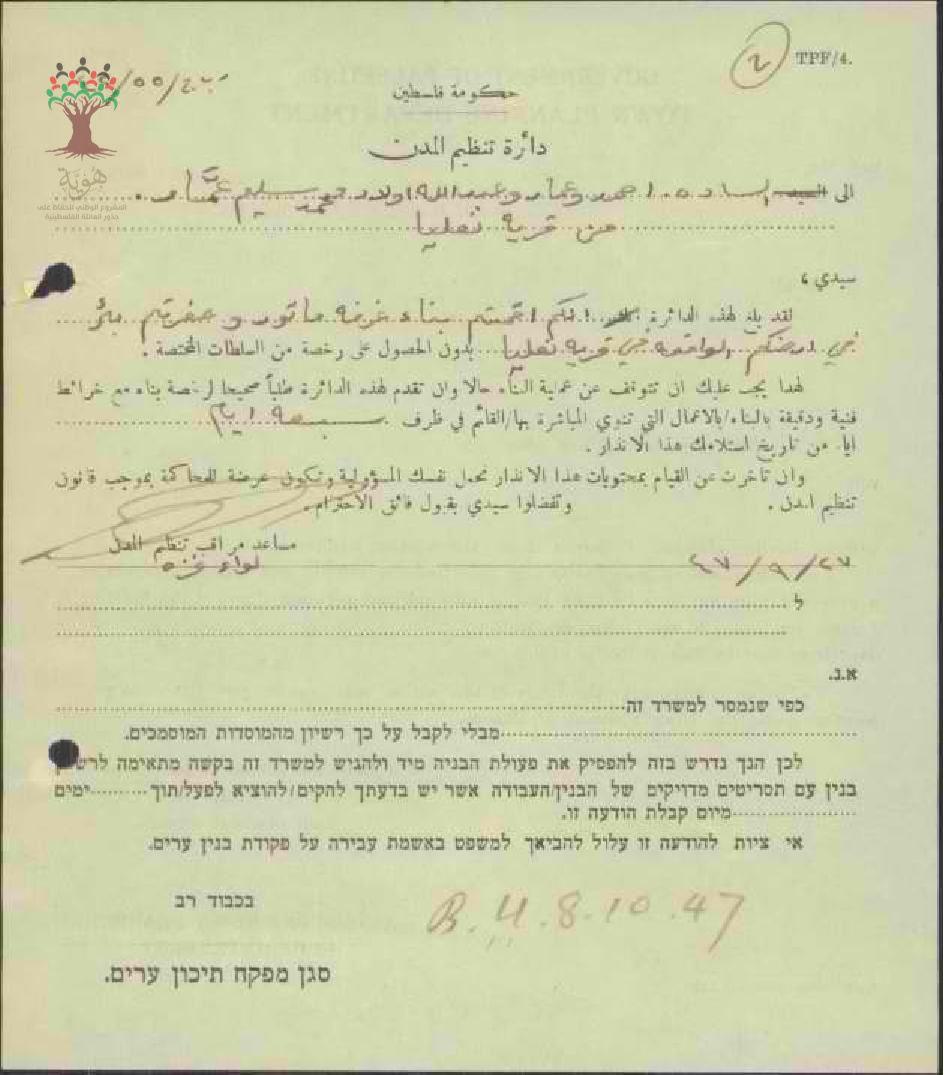 TPF/4.
2
حكومة فلسطين
دائرة تنظيم المدن
هوية
المشروع الوطني للحفاظ على
جذور العائلة الفلسطينية
الى السيد السادة احمد وعمار وعبدالله اولاد محمد سليم عمّار
من قرية نعليا
سيدي ،
لقد بلغ لهذه الدائرة انكم اقمتم بناء غرفة ماتور وحفرتم بئر
في ارضكم الواقعة في قرية نعليا بدون الحصول على رخصة من السلطات المختصة .
لهذا يجب عليك ان تتوقف عن عملية البناء حالا وان تقدم لهذه الدائرة طلباً صحيحا لرخصة بناء مع خرائط
فنية ودقيقة بالبناء/بالاعمال التي تنوي المباشرة بها/القائم في ظرف سبعة ايام
ايام من تاريخ استلامك هذا الانذار .
وان تأخرت عن القيام بمحتويات هذا الانذار تحمل نفسك المسؤولية وتكون عرضة للمحاكمة بموجب قانون
تنظيم المدن . وتفضلوا سيدي بقبول فائق الاحترام .
مساعد مراقب تنظيم المدن
لواء غزة
٤٧/٩/٢٧
ל
א.נ.
כפי שנמסר למשרד זה
מבלי לקבל על כך רשיון מהמוסדות המוסמכים.
לכן הנך נדרש בזה להפסיק את פעולת הבניה מיד ולהגיש למשרד זה בקשה מתאימה לרשיון
בנין עם תסריטים מדויקים של הבנין/העבודה אשר יש בדעתך להקים/להוציא לפעל/תוך ימים
מיום קבלת הודעה זו.
אי ציות להודעה זו עלול להביאך למשפט באשמת עבירה על פקודת בנין ערים.
בכבוד רב
B.U. 8.10.47
סגן מפקח תיכון ערים.